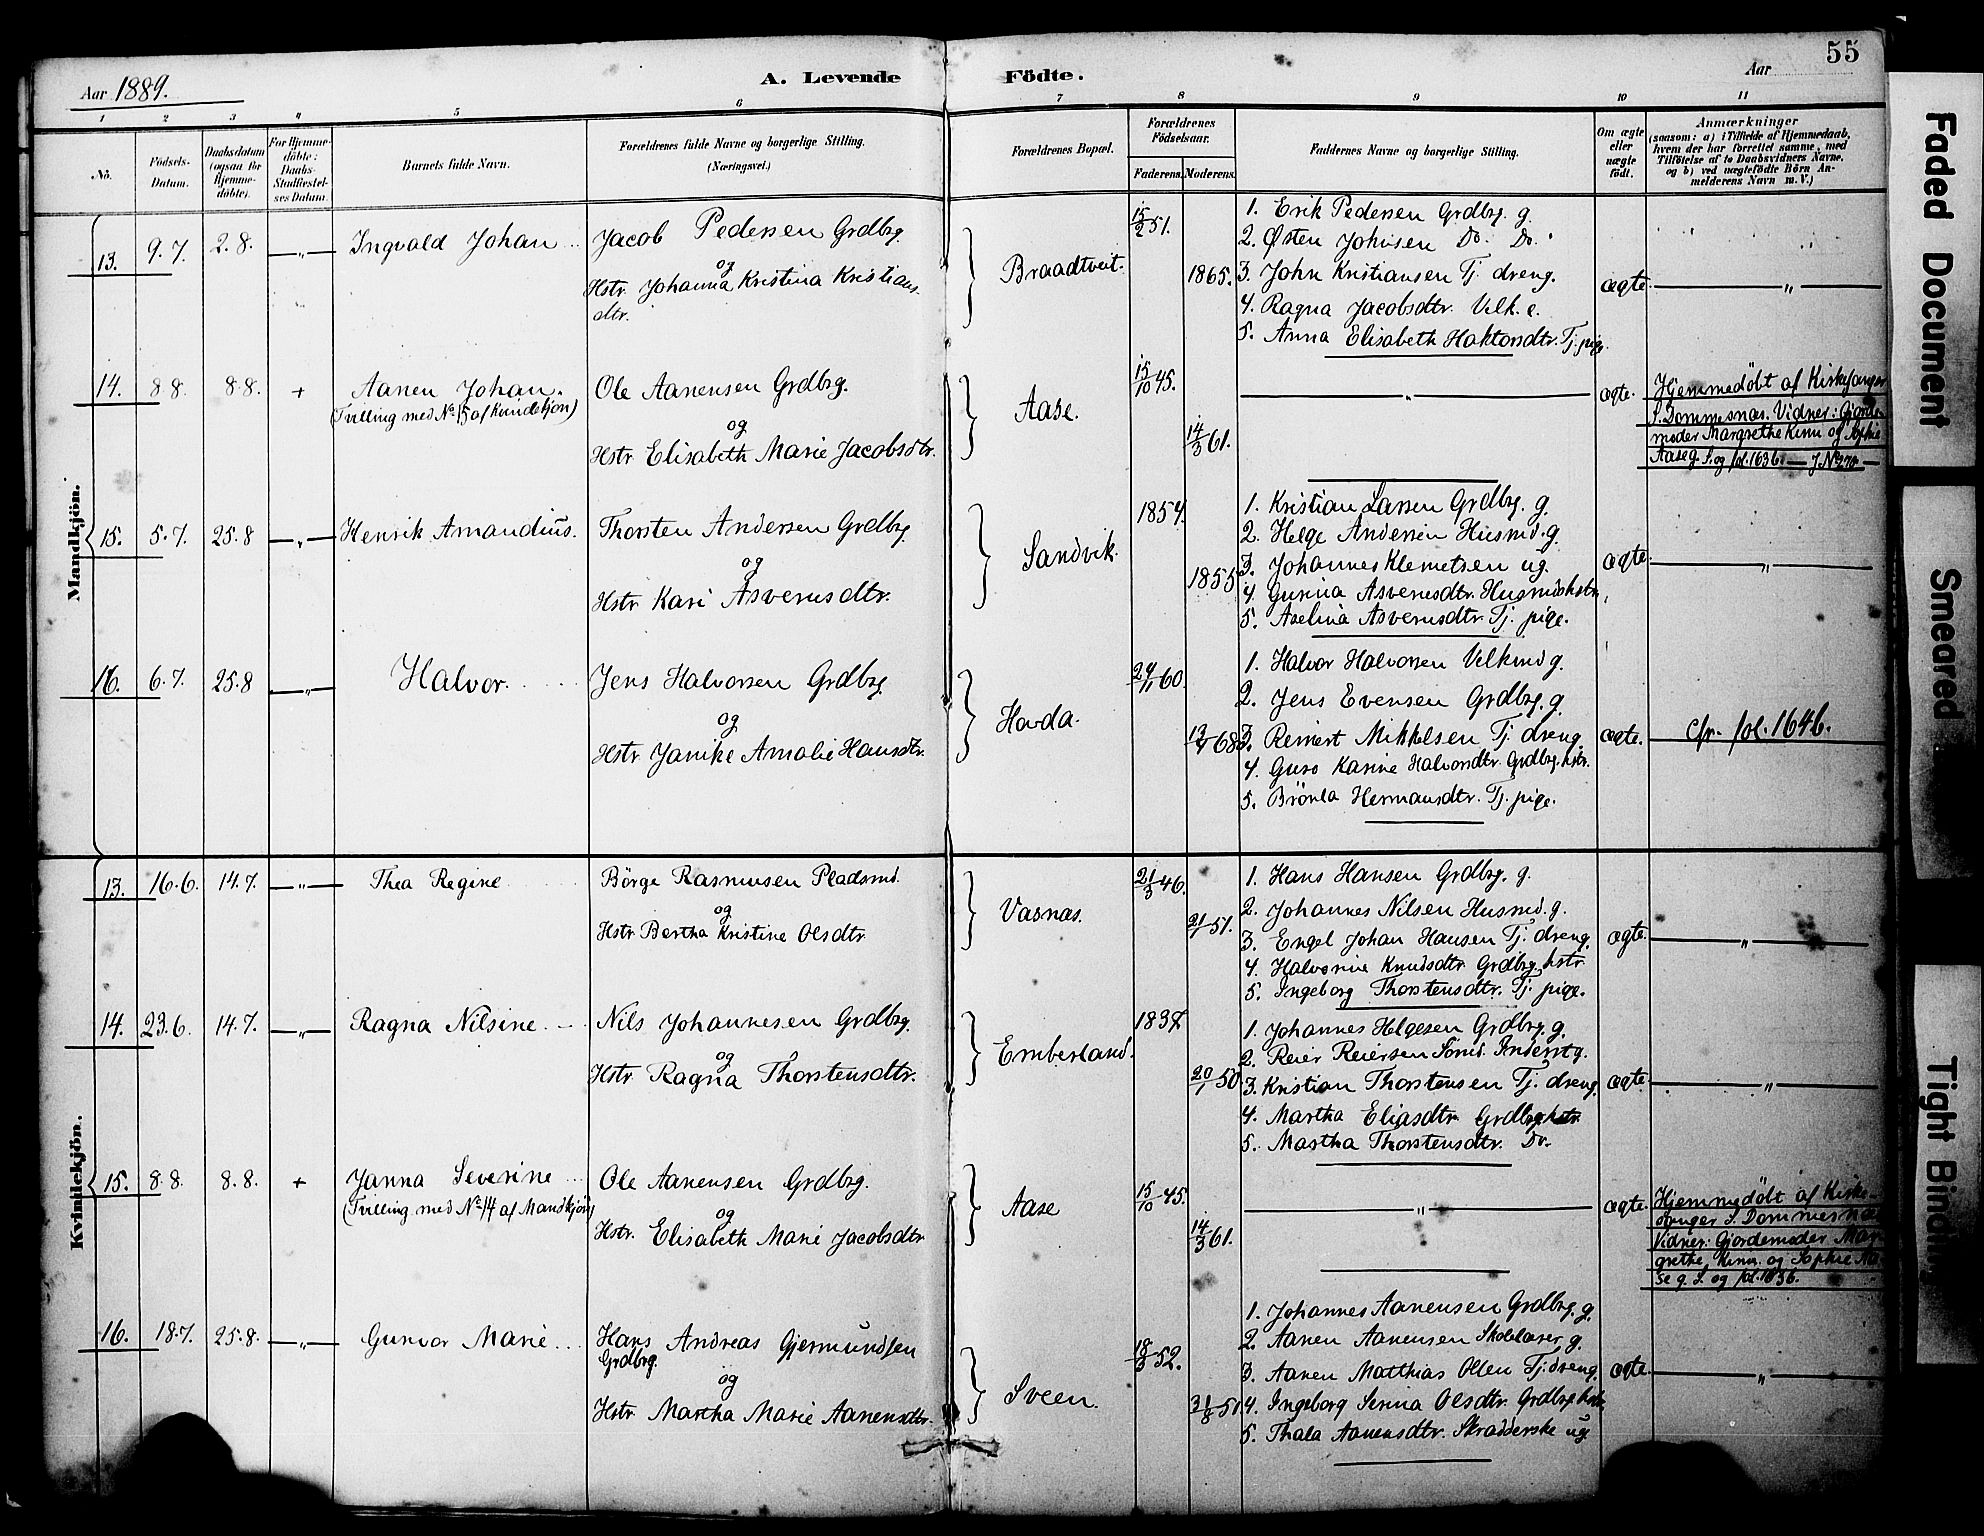 55
Aar 1889.
A. Levende Födte.
Aar
1 2 3 4 5 6 7 8 9 10 11
No.
Födsels-
Datum.
Daabsdatum
(ogsaa for
Hjemme-
döbte).
For Hjemme-
döbte:
Daabs-
Stadfæstel-
ses Datum.
Barnets fulde Navn.
Forældrenes fulde Navne og borgerlige Stilling.
(Næringsvei.)
Forældrenes Bopæl.
Forældrenes
Födselsaar.
Faderens. Moderens.
Faddernes Navne og borgerlige Stilling.
Om ægte
eller
uægte
födt.
Anmærkninger
(saasom: a) i Tilfælde af Hjemmedaab,
hvem der har forrettet samme, med
Tilföielse af to Daabsvidners Navne,
og b) ved uægtefödte Börn An-
melderens Navn m. V.)
Mandkjön.
13. 9.7. 2.8. —„— Ingvald Johan
Jacob Pedersen Grdbrg.
og
Hstr. Johanna Kristina Kristians-
dtr.
Braadtveit.
15/2 51.
1865.
1. Erik Pedersen Grdbrg. g.
2. Østen Johnsen Do. Do.
3. John Kristiansen Tj. dreng.
4. Ragna Jacobsdtr. Velk. e.
5. Anna Elisabeth Haktorsdtr. Tj. pige.
ægte. —„—
14. 8.8. 8.8. + Aanen Johan.
(Tvilling med No 15 af Kvindekjön)
Ole Aanensen Grdbrg.
og
Hstr Elisabeth Marie Jacobsdtr.
Aase.
15/10 45.
14/3 61.
—„—
ægte.
Hjemmedöbt af Kirkesanger
S. Dommesnæs. Vidner: Gjorde-
moder Margrethe Kinn og Sophie
Aase g. S. og fol. 1636. —
15. 5.7. 25.8 —„— Henrik Amandius.
Thorsten Andersen Grdbrg
og
Hstr Kari Asverusdtr.
Sandvik.
1854.
1855
1. Kristian Larsen Grdbrg. g.
2. Helge Andersen Husmd. g.
3. Johannes Klemetsen ug.
4. Gurina Asverusdtr. Husmdshstr.
5. Aselina Asverusdtr. Tj. pige.
ægte. —„—
16. 6.7. 25.8 —„— Halvor.
Jens Halvorsen Grdbrg.
og
Hstr Janike Amalie Hansdtr.
Hovda.
24/11 60.
13/9 68
1. Halvor Halvorsen Velkmd g.
2. Jens Evensen Grdbrg. g.
3. Reinert Mikkelsen Tj. dreng.
4. Guro Karine Halvorsdtr. Grdbrg. hstr.
5. Brönla Hermansdtr. Tj. pige.
ægte. cfr. fol. 1646.
Kvindekjön.
13. 16.6. 14.7. —„— Thea Regine
Börge Rasmusen Pladsmd.
og
Hstr Bertha Kristine Olsdtr
Vasnæs.
21/3 46.
21/1 51.
1. Hans Hansen Grdbrg. g.
2. Johannes Nilsen Husmd. g.
3. Engel Johan Hansen Tj. dreng.
4. Halvorine Knudsdtr. Grdbrg. hstr.
5. Ingeborg Thorstensdtr. Tj. pige.
ægte. —„—
14. 23.6. 14.7. —„— Ragna Nilsine
Nils Johannesen Grdbrg.
og
Hstr Ragna Thorstensdtr.
Emberland.
1837
20/1 50.
1. Johannes Helgesen Grdbrg. g.
2. Reier Reiersen Tömd. Inderst g.
3. Kristian Thorstensen Tj. dreng
4. Martha Eliasdtr Grdbrg. hstr
5. Martha Thorstensdtr. Do.
ægte. „
15. 8.8. 8.8. + Janna Severine
(Tvilling med No 14 af Mandkjön)
Ole Aanensen Grdbrg.
og
Hstr. Elisabeth Marie Jacobsdtr
Aase
15/10 45.
14/3 61.
—„—
ægte.
Hjemmedöbt af Kirke-
sanger S. Dommesnæs
Vidner: Gjordemoder Mar-
grethe Kinn og Sophie Aa-
se g. S. og fol. 1636.
16. 18.7. 25.8. —„— Gunvor Marie
Hans Andreas Gjermundsen
Grdbrg.
og
Hstr Martha Marie Aanensdtr.
Sveen.
18/3 52.
31/8 51
1. Johannes Aanensen Grdbrg. g.
2. Aanen Aanensen Skolelærer g.
3. Aanen Matthias Olsen Tj. dreng
4. Ingeborg Serina Olsdtr. Grdbrg. hstr.
5. Thala Aanensdtr. Skradderske ug.
ægte. „
Faded Document
Smeared
Tight Binding